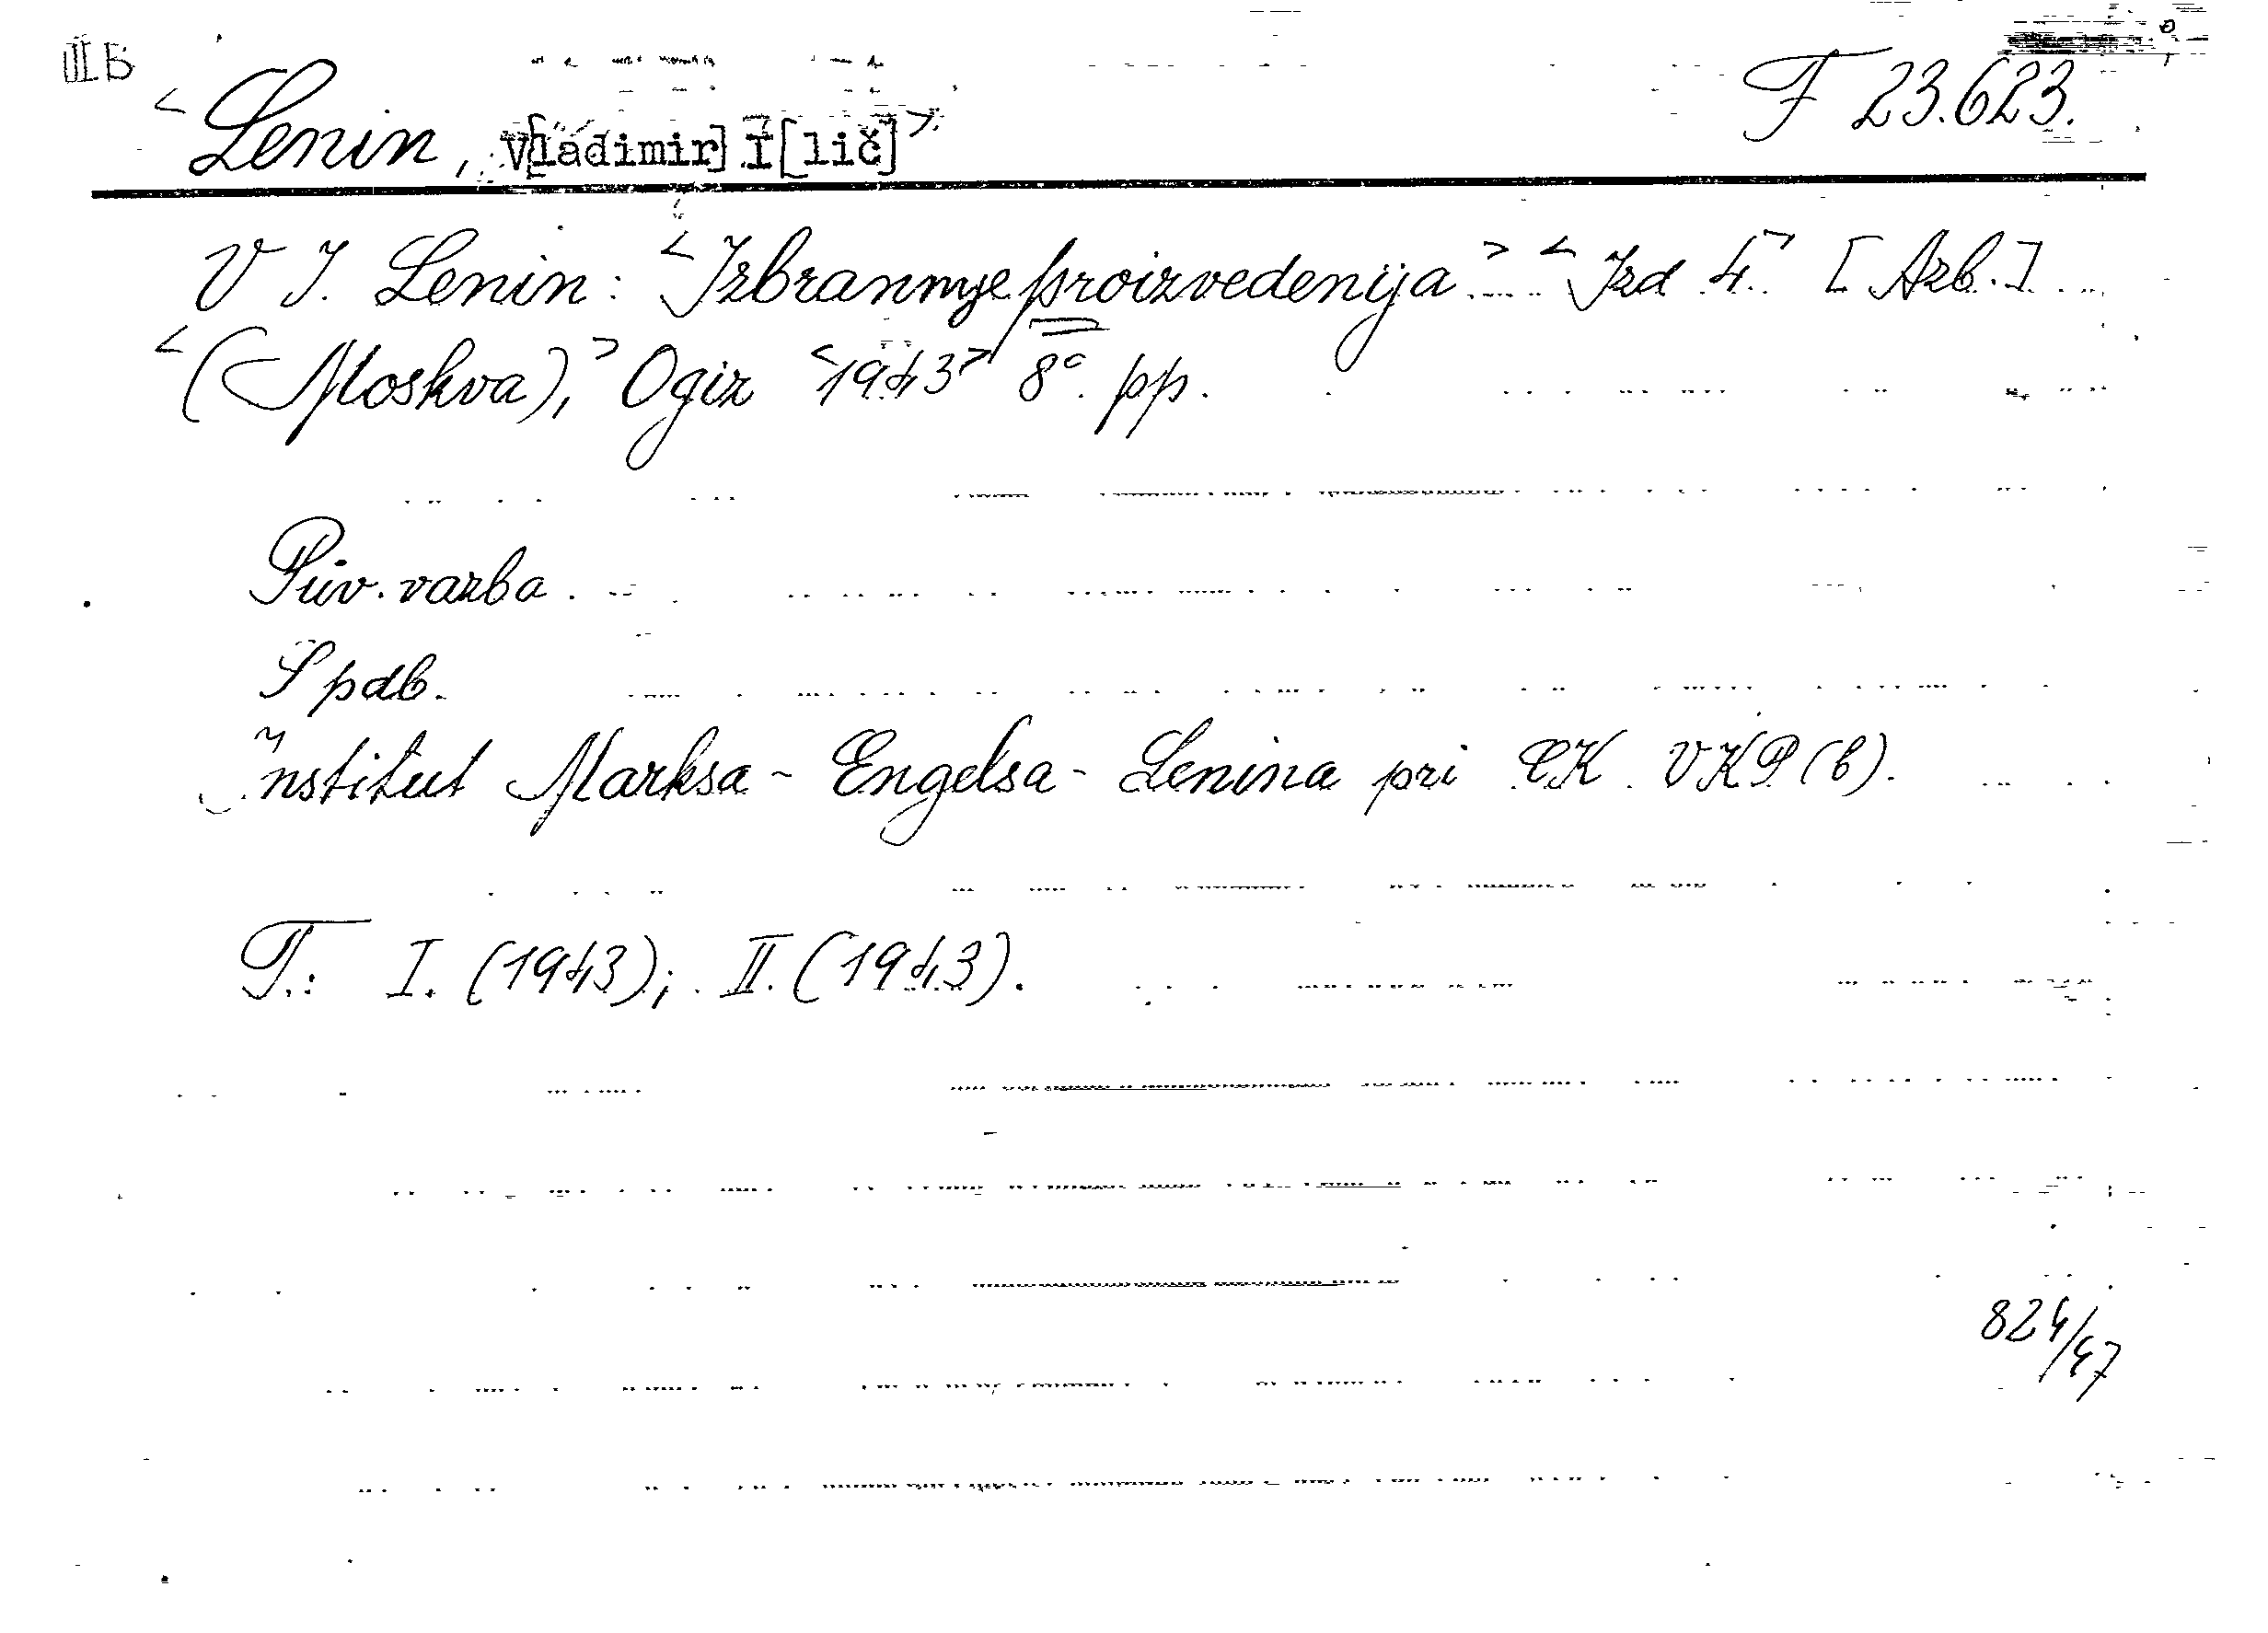 II Б
<Lenin, V[ladimir] I[lič]> F 23.623.
V I. Lenin: <Izbrannye proizvedenija.> <Izd 4.> [Azb.]
<(Moskva),> Ogiz <1943> 8° pp.
Pův. vazba.
S pdb.
Institut Marksa - Engelsa - Lenina pri CK VKP(b).
T.: I. (1943); II. (1943).
824/47